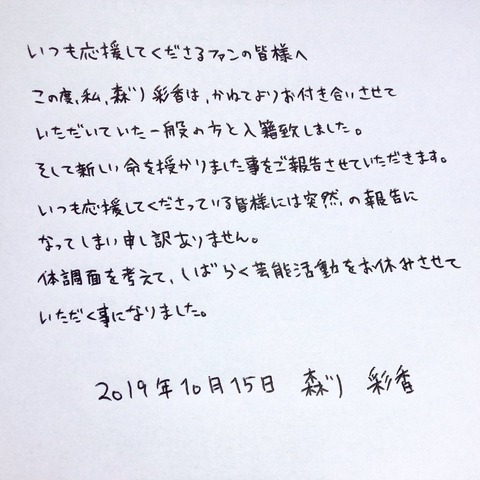 いつも応援してくださるファンの皆様へ
この度、私、森川彩香は、かねてよりお付き合いさせて
いただいていた一般の方と入籍致しました。
そして新しい命を授かりました事をご報告させていただきます。
いつも応援してくださっている皆様には突然の報告に
なってしまい申し訳ありません。
体調面を考えて、しばらく芸能活動をお休みさせて
いただく事になりました。
2019年10月15日 森川 彩香